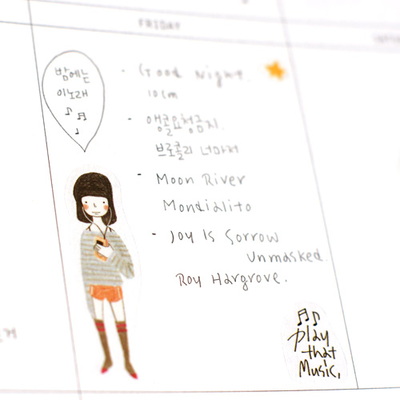 FRIDAY
밤에는
이노래
- Good Night.
10cm
- 앵콜요청금지.
브로콜리 너마저
- Moon River
Mondialito
- Joy Is Sorrow
Unmasked.
Roy Hargrove.
Play
that
Music,